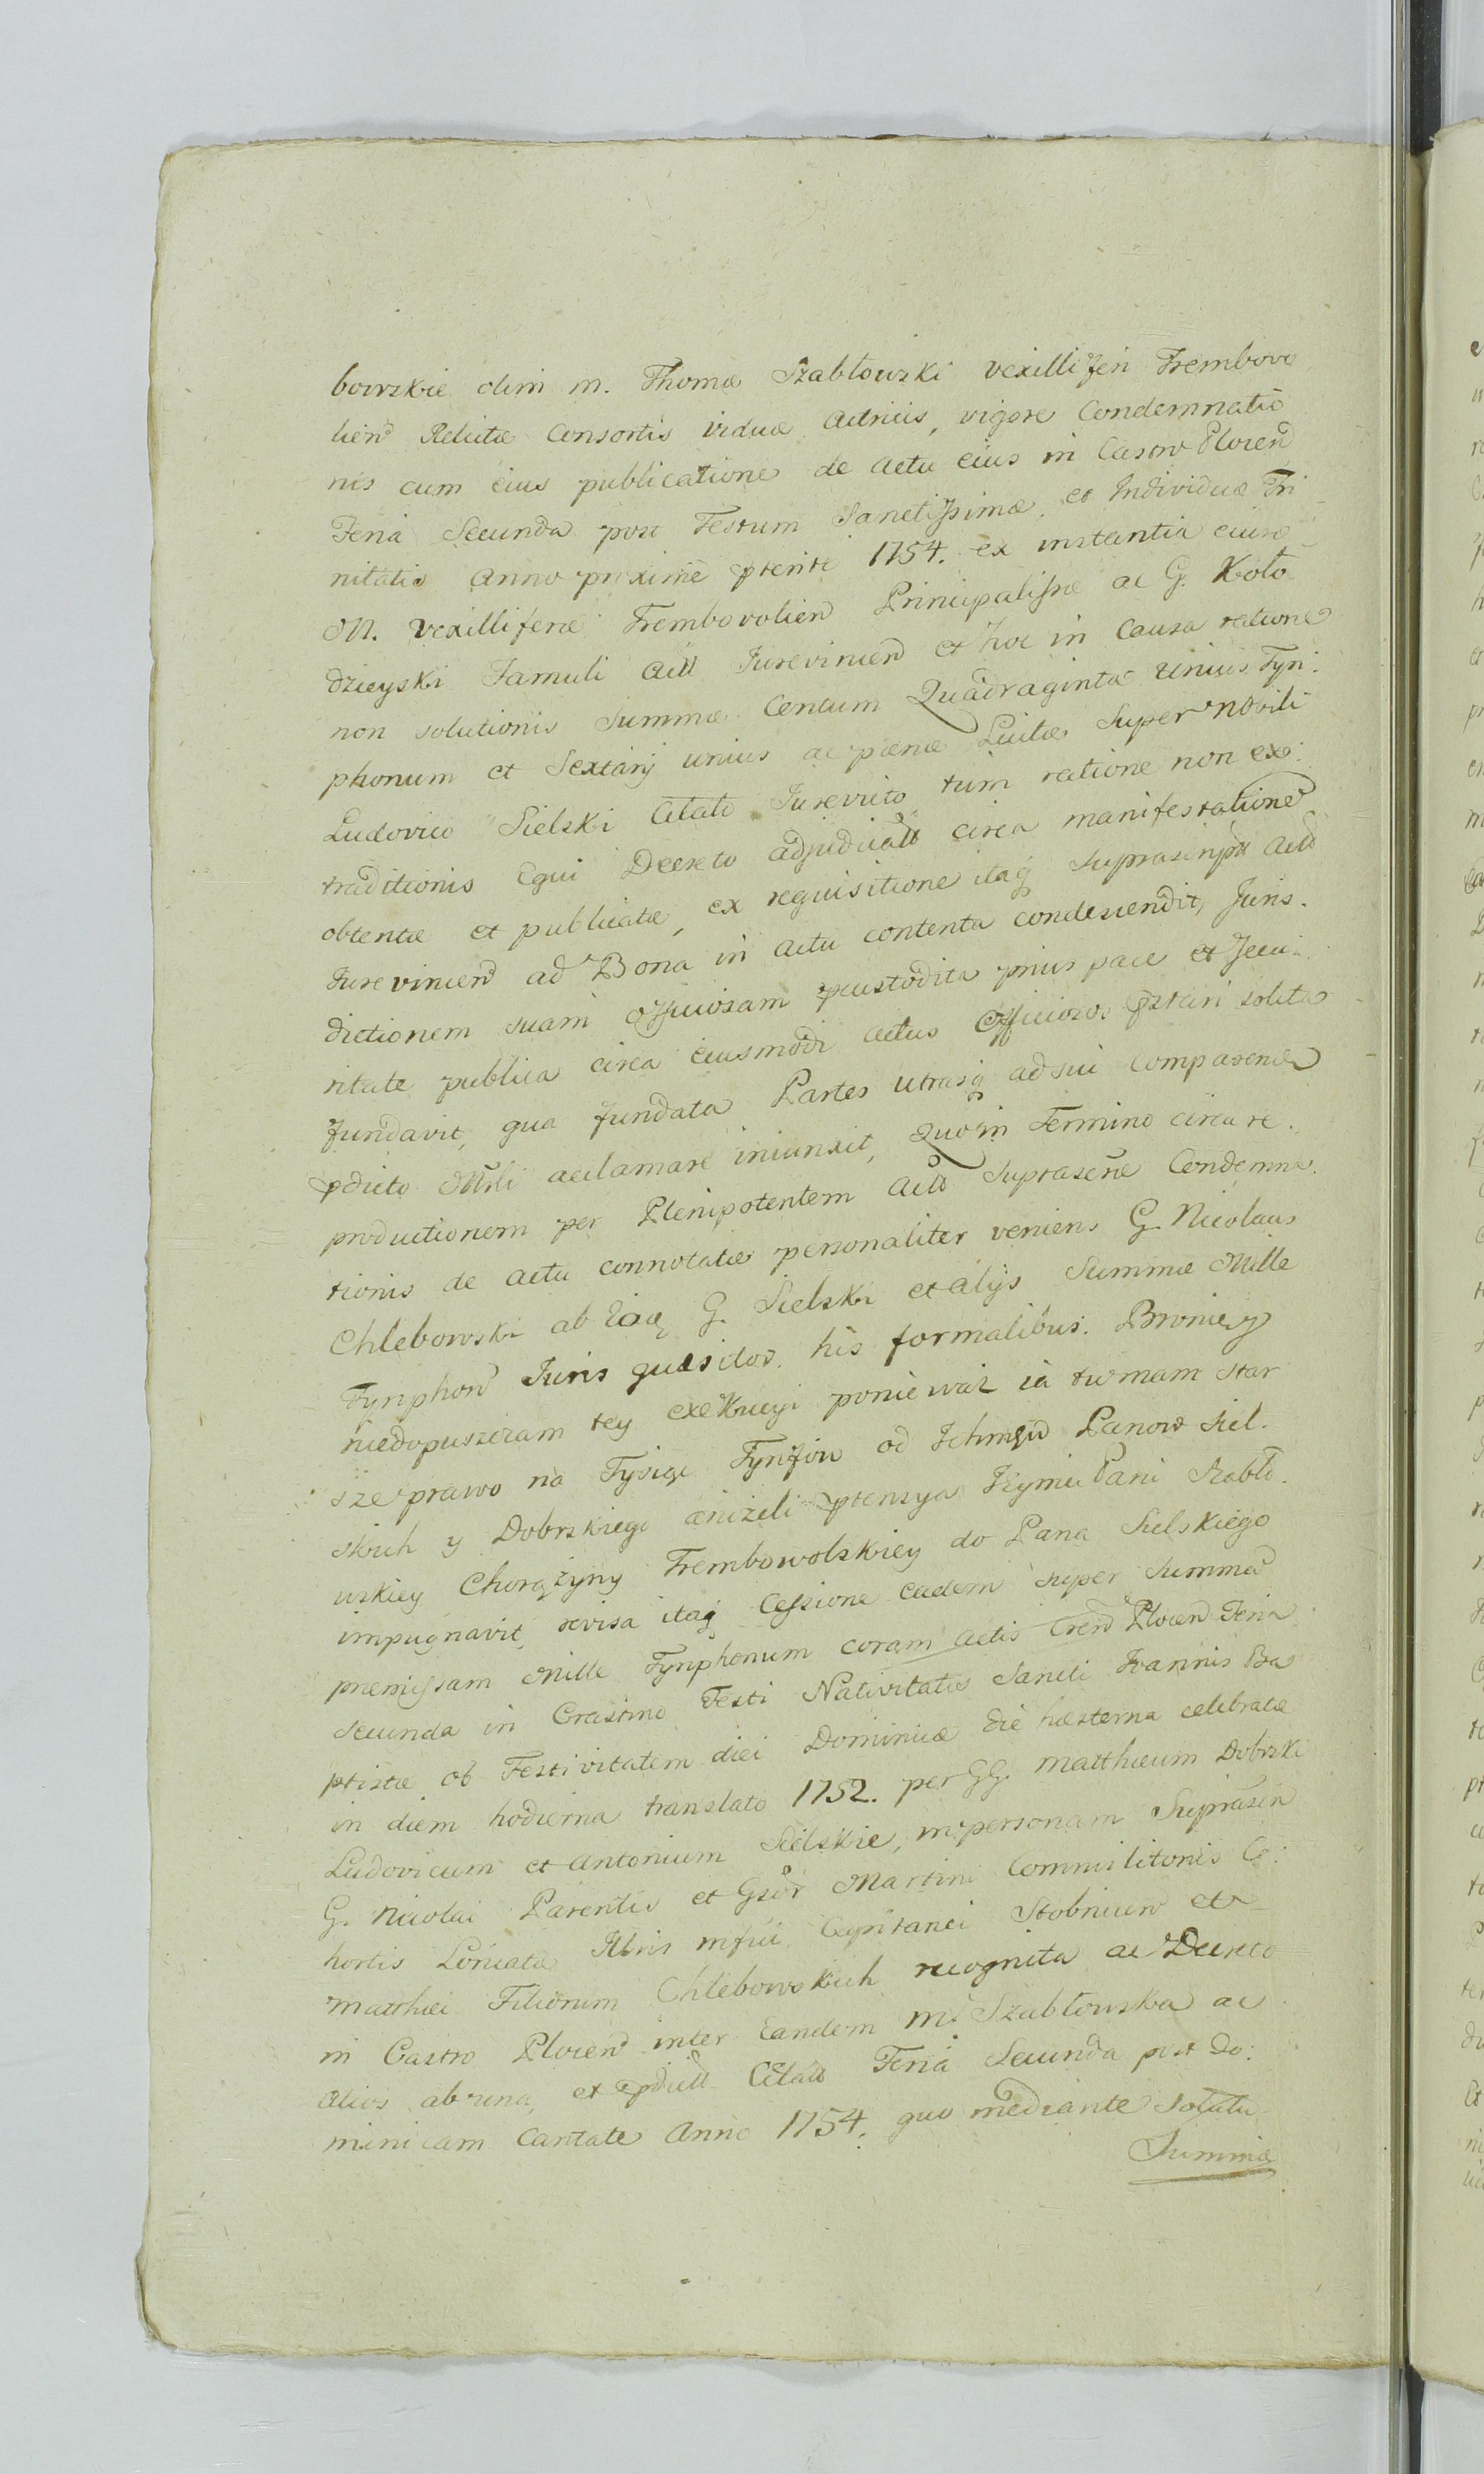 bowskie olim M. Thomæ Szabłowski vexilliferi Trembovo
lien Relictæ Consortis viduæ Actricis, vigore Condemnatio
nis cum eius publicatione de actu eius in Castro Plocen
Feria Secunda post Festum Sanctissimæ, et Individuæ Tri
nitatis Anno proxime pterito 1754. ex instantia eiusd
M. Vexilliferæ Trembovolien Principalissæ ac G. Koło
dzieyski Famuli Act Jurevincen et hoc in Causa ratione
non solutionis Summæ Centum Quadraginta Unius Tyn:
phonum et Sextarij unius ac pænæ Luitæ super Nobili
Ludovico Sielski Citato Jurevicto tum ratione non ex:
traditionis Equi Decreto adjudicati circa manifestatione
obtentæ et publicatæ, ex requisitione itaq suprascript Act
Jurevincen ad Bona in actu contenta condescendit, Juris.
dictionem suam officiosam pcustodita prius pace et Secu:
ritate publica circa eiusmodi actus officiosos pstari solita
fundavit, qua fundata Partes utrasq ad sui comparend
pdicto Mrli acclamare iniunxit, Quo in Termino circa re.
productionem per Plenipotentem Act suprascrie Condemna.
tionis de actu connotatæ personaliter veniens G. Nicolaus
Chlebowski ab G. Sielski et alijs Summæ Mille
Tynphon Juris quæsitor his formalibus. Bronię y
niedopuszczam tey exekucyi poniewaz ia tu mam star
sze prawo na Tysiąc Tynfow od Ichmsw Panow Siel.
skich y Dobrskiego aniżeli ptensya Jeymci Pani Szabło.
wskiey Chorążyny Trembowolskiey do Pana Sielskiego
impugnavit, revisa itaq Cessione eadem super Summa
præmissam Mille Tynphonum coram actis Cren Plocen Feria
Secunda in Crastino Festi Nativitatis Sancti Joannis Ba
ptistæ ob Festivitatem diei Dominicæ die hesterna celebratæ
in diem hodierna translato 1752. per GG. Matthæum Dobrski
Ludovicum et Antonium Sielskie, in personam Suprascri
G. Nicolai Parentis et Gsor Martini Commilitonis Co:
hortis Loricatæ Capitanei Stobnicen et
Matthæi Filiorum Chlebowskich recognita ac Decreto
in Castro Plocen inter Eandem M. Szabłowska ac
alios ab una, et pdict Citat Feria Secunda post Do:
minicam Cantate Anno 1754. quo mediante solutu
Summæ